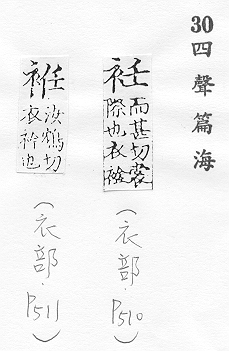 30四聲篇海
衽
而甚切裳
際也衣
(衣部.P510)
袵
汝鴆切
衣衿也
(衣部.P511)